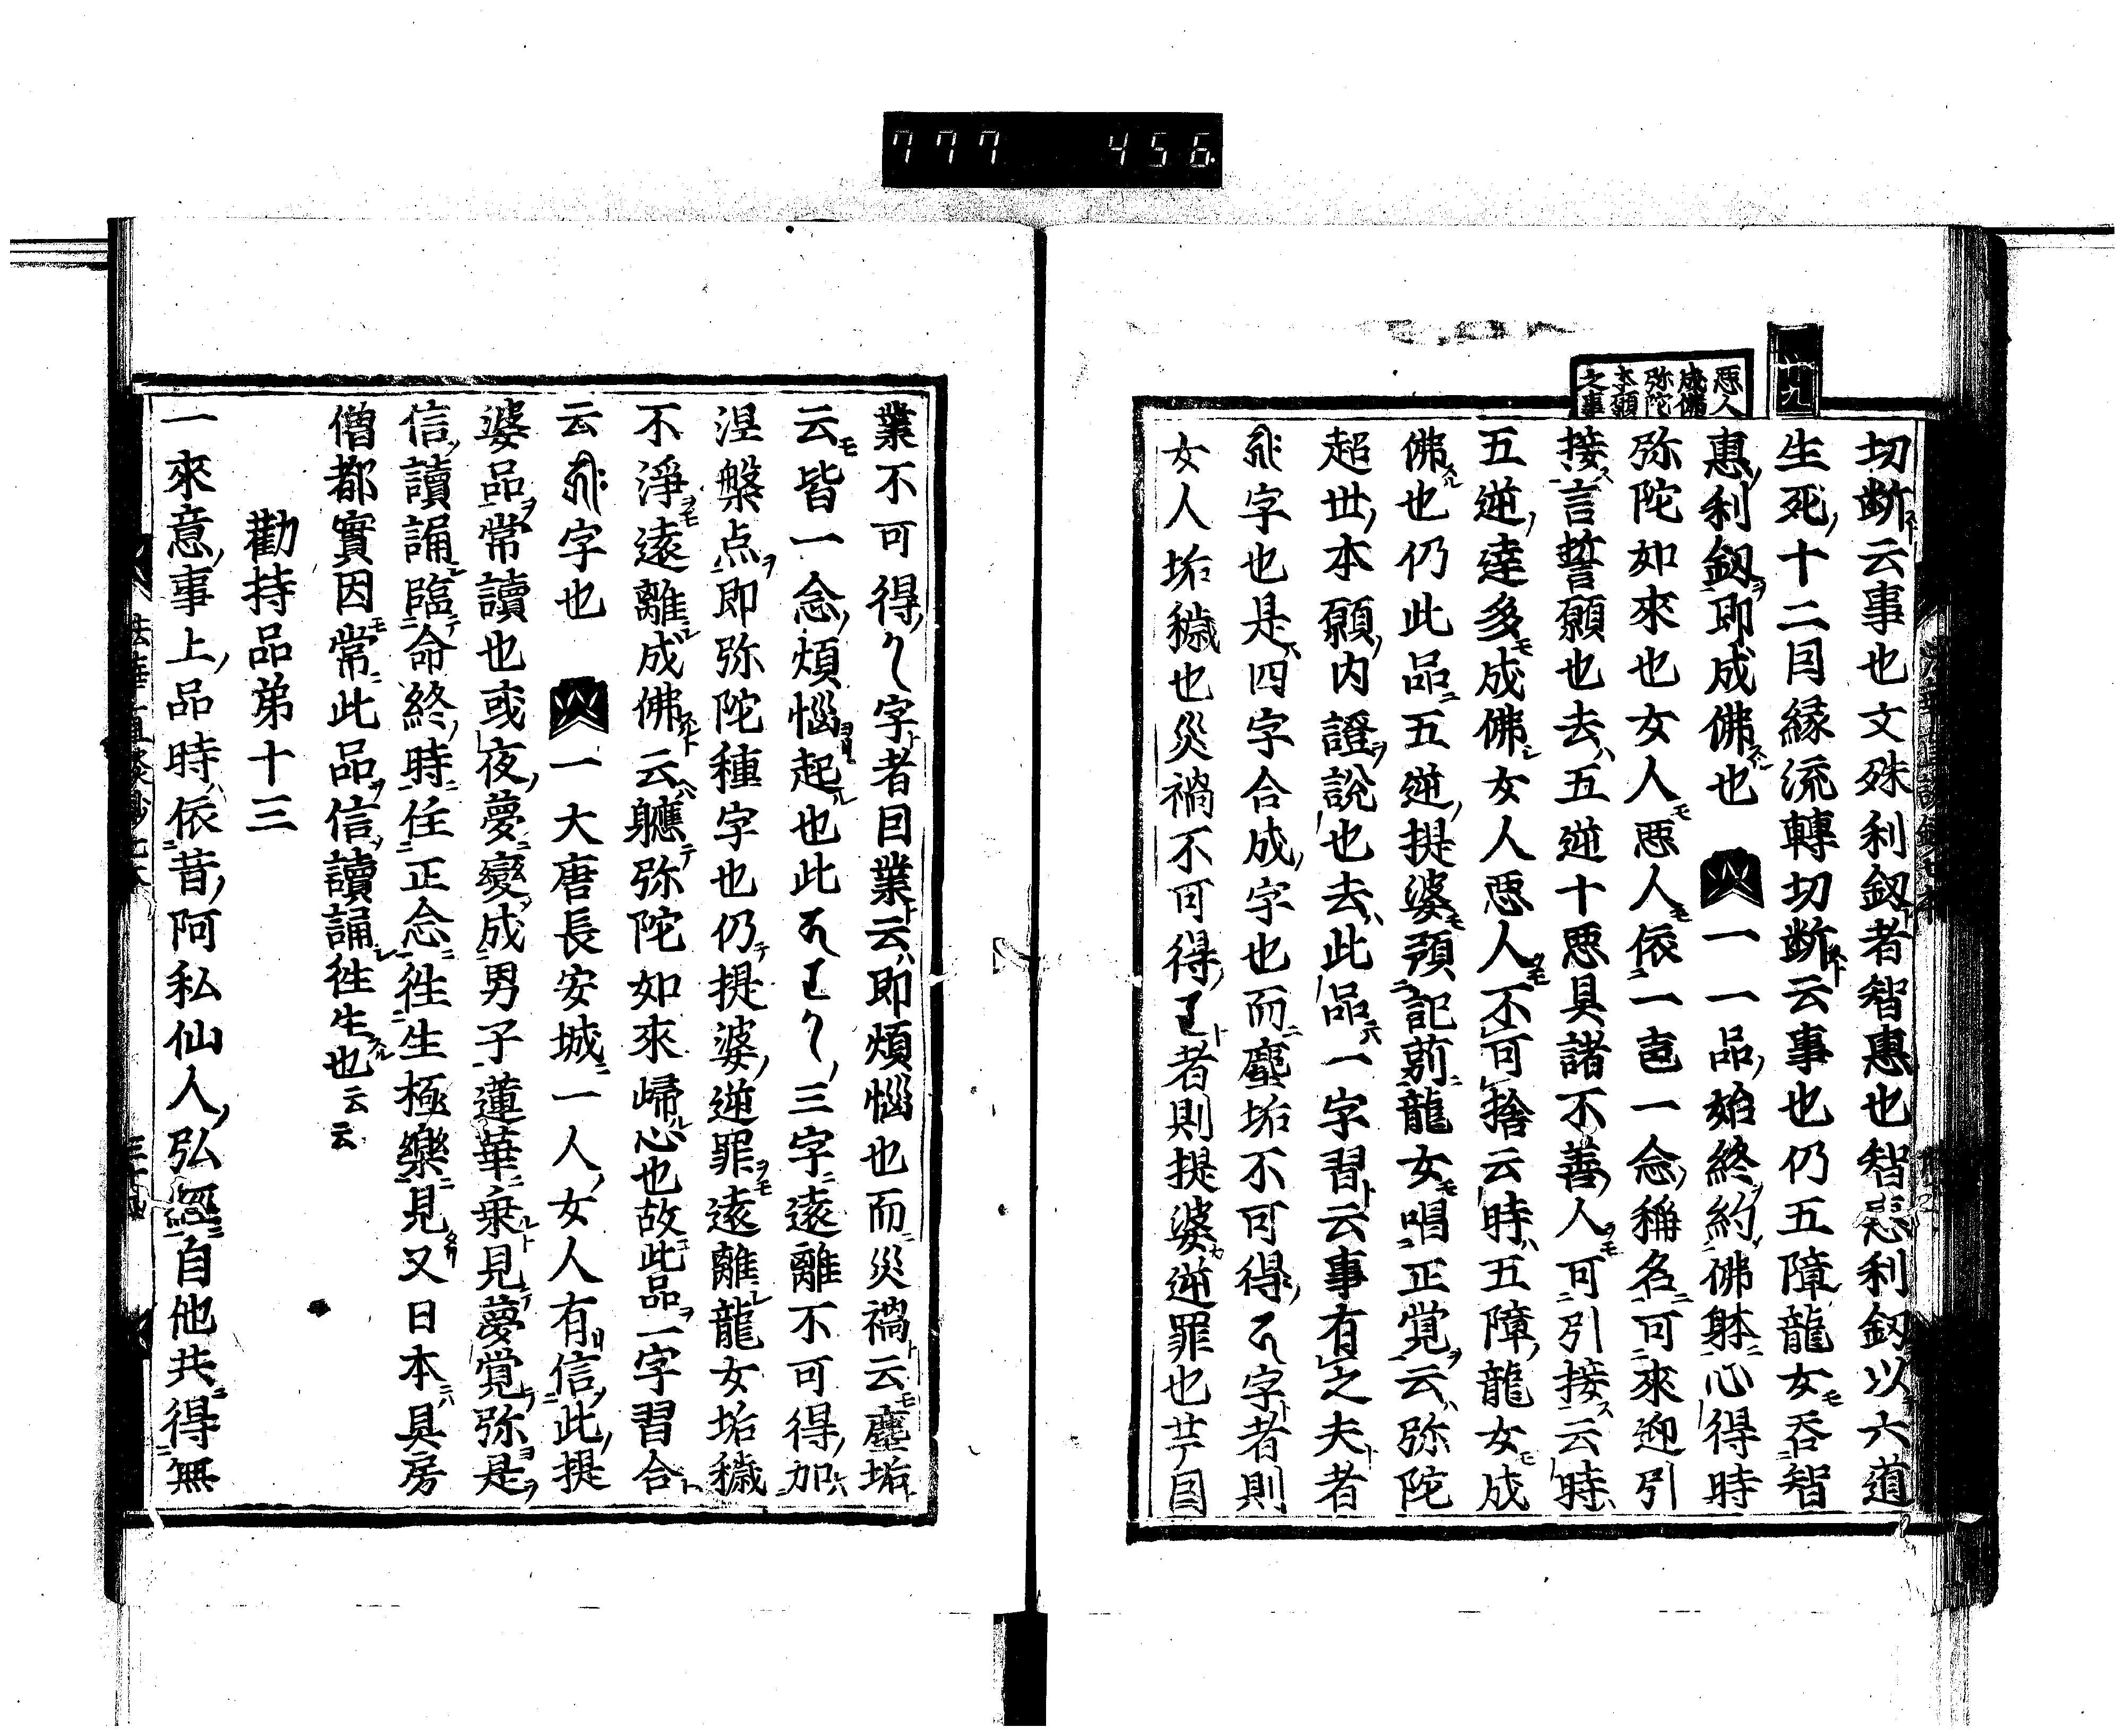 777 456
惡人
成佛
弥陀
本願
之事
切断云事也文殊利釼者智惠也智惠利釼以六道
生死十二因縁流轉切断云事也仍五障龍女呑智
惠利釼即成佛也 一一品始終約佛躰心得時
弥陀如來也女人惡人依一㐂一念稱名可來迎引
接言誓願也去五逆十惡具諸不善人可引接云時
五逆達多成佛女人惡人不可捨云時五障龍女成
佛也仍此品五逆提婆預記莂龍女唱正覚云弥陀
超世本願内證說也去此品一字習云事有之夫者
字也是四字合成字也而塵垢不可得 字者則
女人垢穢也災禍不可得 者則提婆逆罪也廿因
業不可得 字者因業云即煩惱也而災禍云塵垢
云皆一念煩惱起也此 三字遠離不可得加
涅槃点即弥陀種字也仍提婆逆罪遠離龍女垢穢
不淨遠離成佛云軈弥陀如來歸心也故此品一字習合
云 字也 一大唐長安城一人女人有信此提
婆品常讀也或夜夢變成男子蓮華乗見夢覚弥是
信讀誦臨命終時住正念徃生極樂見又日本具房
僧都實因常此品信讀誦徃生也云云
勸持品弟十三
一來意事上品時依昔阿私仙人弘經自他共得無